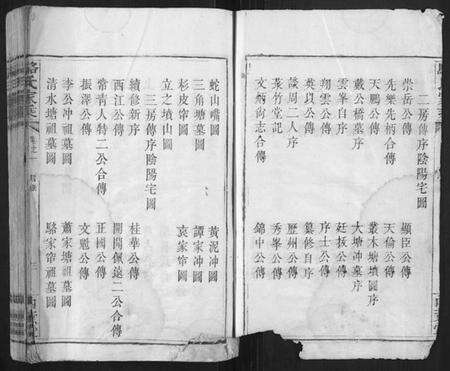 二房傳序陰陽宅圖
崇岳公傳 顯臣公傳
先樂先柄合傳 天倫公傳
天鵬公傳 叢木塘墳圖序
戴公橋墓序 大塘冲墓序
雲峯自序 廷振公傳
翔雲公傳 序士公傳
英以公傳 纂修自序
談周二人序 歷州公傳
菉竹堂記 秀峯公傳
文炳尚志公傳 錦中公傳
蛇山嘴圖 黃泥冲圖
三角塘墓圖 譚家冲圖
杉皮窜圖 袁家窜圖
立之墳山圖
三房傳序陰陽宅圖
續修新序 桂華公傳
西江公傳 開蘭佩遠二公合傳
常青人特二公合傳 正國公傳
振澤公傳 文魁公傳
李公冲祖墓圖 蕭家塘祖墓圖
清水塘祖墓圖 駱家窜祖墓圖
駱氏族譜